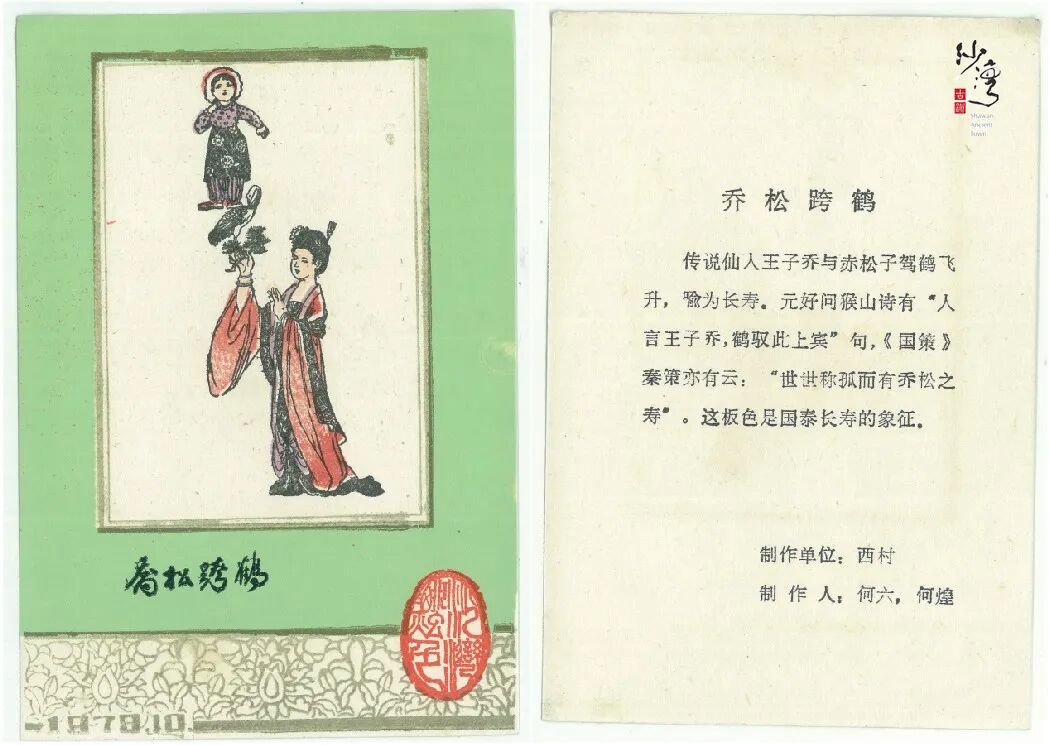 喬松跨鹤
1979.10.
沙灣
古鎮
Shawan
Ancient
Town
乔松跨鹤
传说仙人王子乔与赤松子驾鹤飞
升，喻为长寿。元好问猴山诗有“人
言王子乔，鹤驭此上宾”句，《国策》
秦策亦有云：“世世称孤而有乔松之
寿”。这板色是国泰长寿的象征。
制作单位：西村
制作人：何六，何煌